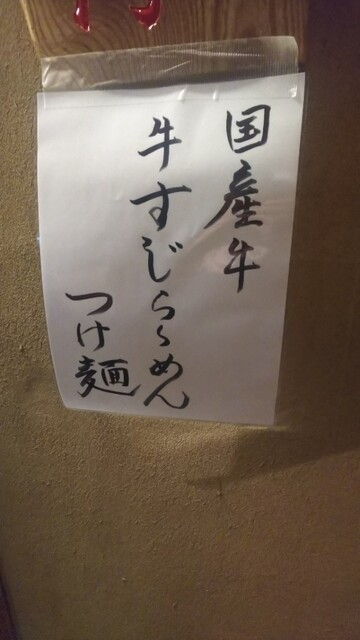 国産牛
牛すじらーめん
つけ麺